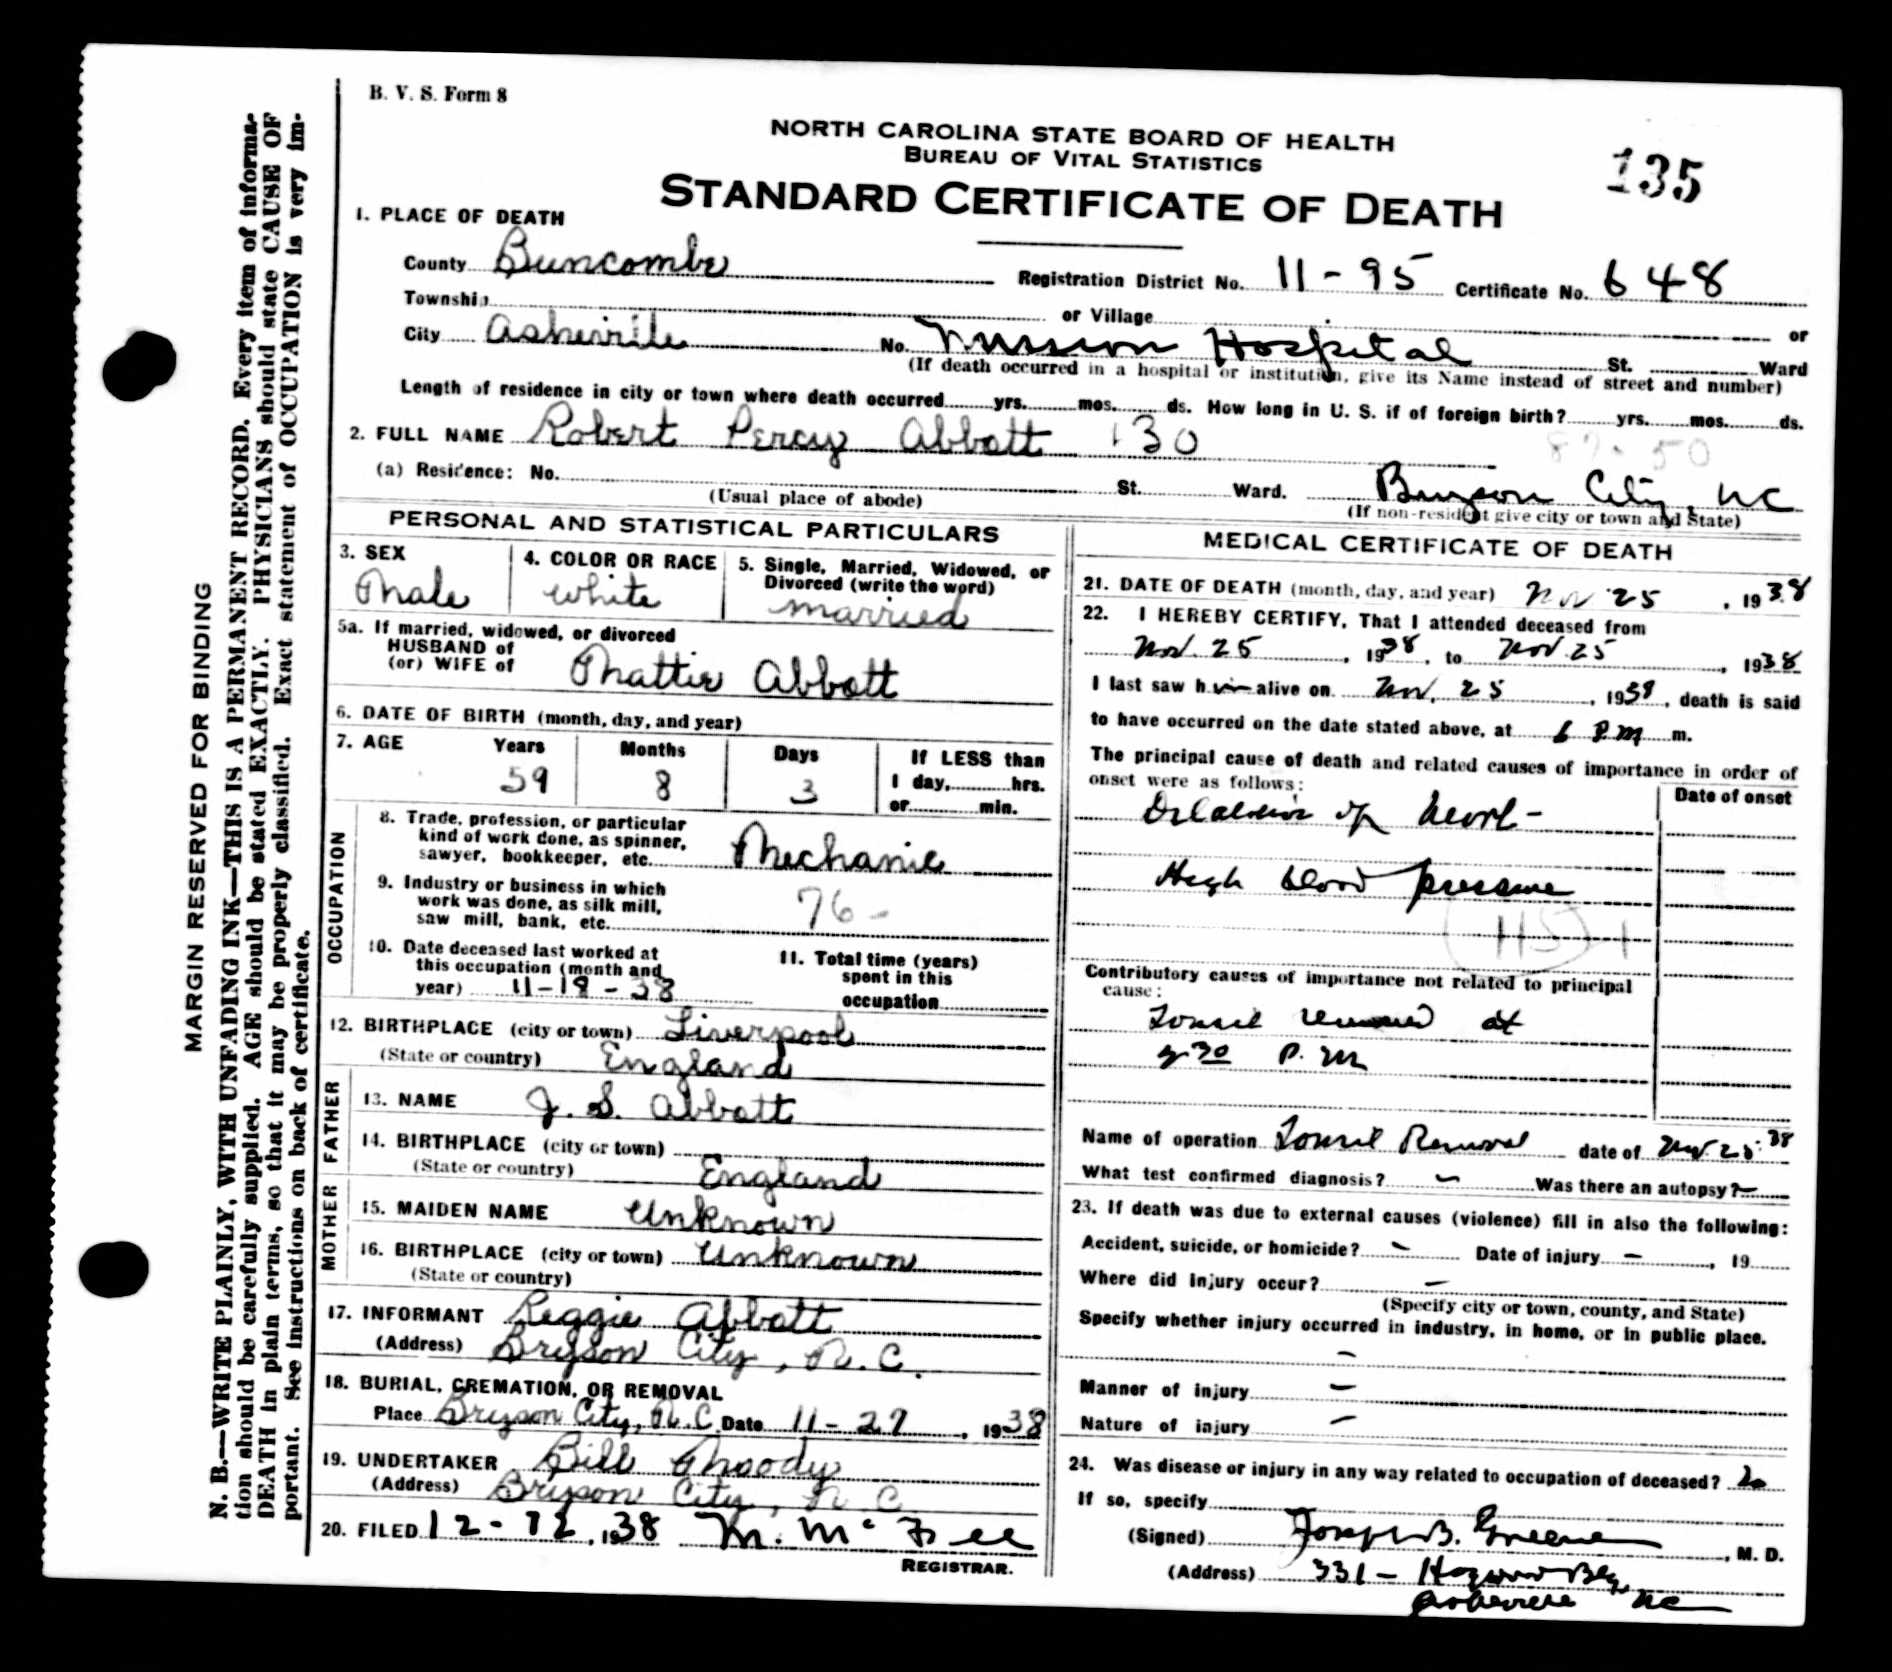 B. V. S. Form 8
NORTH CAROLINA STATE BOARD OF HEALTH
BUREAU OF VITAL STATISTICS
135
STANDARD CERTIFICATE OF DEATH
1. PLACE OF DEATH
County Buncombe Registration District No. 11-95 Certificate No. 648
Township or Village or
City Asheville No. Mission Hospital St. Ward
(If death occurred in a hospital or institution, give its Name instead of street and number)
Length of residence in city or town where death occurred yrs. mos. ds. How long in U. S. if of foreign birth? yrs. mos. ds.
2. FULL NAME Robert Percy Abbott 130
(a) Residence: No. St. Ward. Bryson City, NC
(Usual place of abode) (If non-resident give city or town and State)
PERSONAL AND STATISTICAL PARTICULARS
3. SEX Male
4. COLOR OR RACE white
5. Single, Married, Widowed, or Divorced (write the word) married
5a. If married, widowed, or divorced
HUSBAND of
(or) WIFE of Mattie Abbott
6. DATE OF BIRTH (month, day, and year)
7. AGE Years 59 Months 8 Days 3 If LESS than
1 day, hrs.
or min.
OCCUPATION
8. Trade, profession, or particular
kind of work done, as spinner,
sawyer, bookkeeper, etc. Mechanic
9. Industry or business in which
work was done, as silk mill,
saw mill, bank, etc. 76-
10. Date deceased last worked at
this occupation (month and
year) 11-18-38
11. Total time (years)
spent in this
occupation
12. BIRTHPLACE (city or town) Liverpool
(State or country) England
FATHER
13. NAME J. S. Abbott
14. BIRTHPLACE (city or town)
(State or country) England
MOTHER
15. MAIDEN NAME Unknown
16. BIRTHPLACE (city or town) Unknown
(State or country)
17. INFORMANT Reggie Abbott
(Address) Bryson City, N.C.
18. BURIAL, CREMATION, OR REMOVAL
Place Bryson City, N.C. Date 11-27, 1938
19. UNDERTAKER Bill Moody
(Address) Bryson City, N.C.
20. FILED 12-12, 1938 M. McFee
REGISTRAR.
MEDICAL CERTIFICATE OF DEATH
21. DATE OF DEATH (month, day, and year) Nov 25, 1938
22. I HEREBY CERTIFY, That I attended deceased from
Nov. 25, 1938, to Nov 25, 1938
I last saw him alive on Nov. 25, 1938, death is said
to have occurred on the date stated above, at 6 P.M m.
The principal cause of death and related causes of importance in order of
onset were as follows: Date of onset
Dilatation of heart-
High blood pressure
(115) 1
Contributory causes of importance not related to principal
cause:
Tonsil removed at
30 P.M
Name of operation Tonsil Removal date of Nov. 25. 38
What test confirmed diagnosis? - Was there an autopsy? -
23. If death was due to external causes (violence) fill in also the following:
Accident, suicide, or homicide? - Date of injury -, 19
Where did injury occur? -
(Specify city or town, county, and State)
Specify whether injury occurred in industry, in home, or in public place.
-
Manner of injury -
Nature of injury -
24. Was disease or injury in any way related to occupation of deceased? no
If so, specify
(Signed) Joseph B. Greene, M. D.
(Address) 331 - Haywood Bldg
Asheville NC
MARGIN RESERVED FOR BINDING
N. B.—WRITE PLAINLY, WITH UNFADING INK—THIS IS A PERMANENT RECORD. Every item of informa-
tion should be carefully supplied. AGE should be stated EXACTLY. PHYSICIANS should state CAUSE OF
DEATH in plain terms, so that it may be properly classified. Exact statement of OCCUPATION is very im-
portant. See instructions on back of certificate.